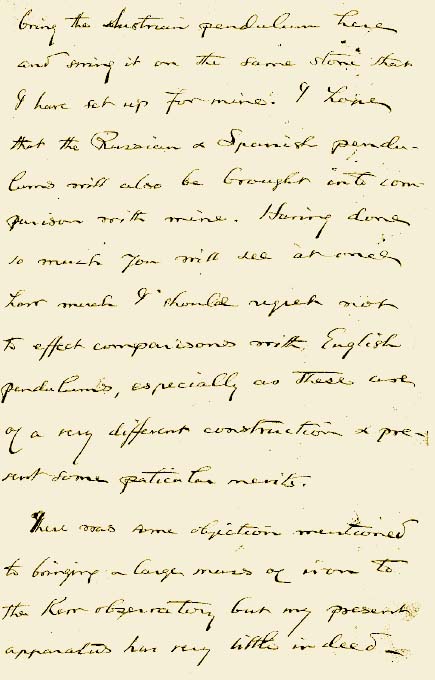 bring the Austrian pendulum here
and swing it on the same stone that
I have set up for mine. I hope
that the Russian & Spanish pendu-
lums will also be brought into com-
parison with mine. Having done
so much you will see at once
how much I should regret not
to effect comparisons with English
pendulums, especially as these are
of a very different construction & pre-
sent some paticular merits.
There was some objection mentioned
to bringing a large mass of iron to
the Kew observatory but my present
apparatus has very little indeed —